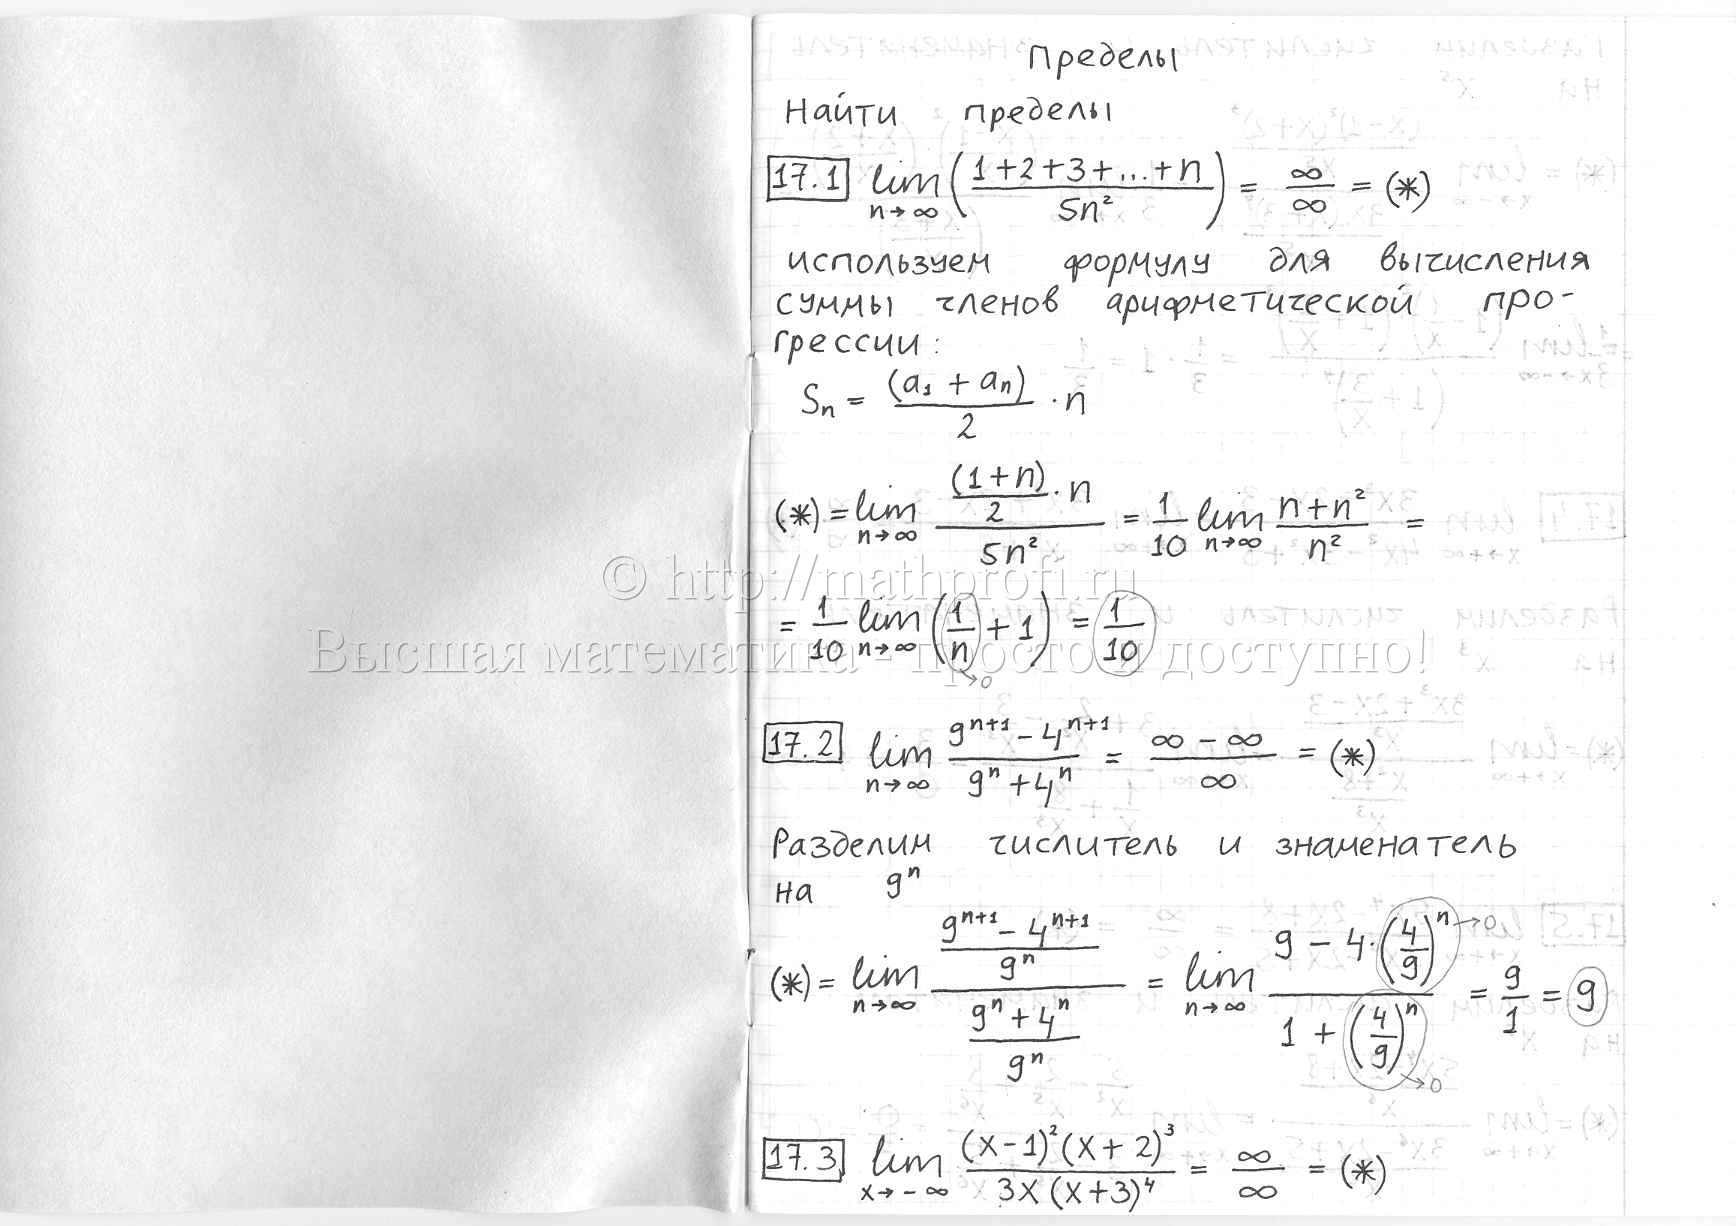 Пределы
Найти пределы
17.1 lim n→∞ ((1+2+3+...+n)/(5n²)) = ∞/∞ = (*)
используем формулу для вычисления
суммы членов арифметической про-
грессии:
Sn = (a₁ + aₙ)/2 · n
(*) = lim n→∞ ((1+n)/2 · n)/(5n²) = 1/10 lim n→∞ (n+n²)/n² =
© http://mathprofi.ru
= 1/10 lim n→∞ (1/n + 1) = 1/10
→0
Высшая математика - просто и доступно!
17.2 lim n→∞ (9ⁿ⁺¹ - 4ⁿ⁺¹)/(9ⁿ + 4ⁿ) = (∞ - ∞)/∞ = (*)
Разделим числитель и знаменатель
на 9ⁿ
(*) = lim n→∞ ((9ⁿ⁺¹ - 4ⁿ⁺¹)/9ⁿ)/((9ⁿ + 4ⁿ)/9ⁿ) = lim n→∞ (9 - 4·(4/9)ⁿ →0)/(1 + (4/9)ⁿ →0) = 9/1 = 9
17.3 lim x→-∞ ((x-1)²(x+2)³)/(3x(x+3)⁴) = ∞/∞ = (*)